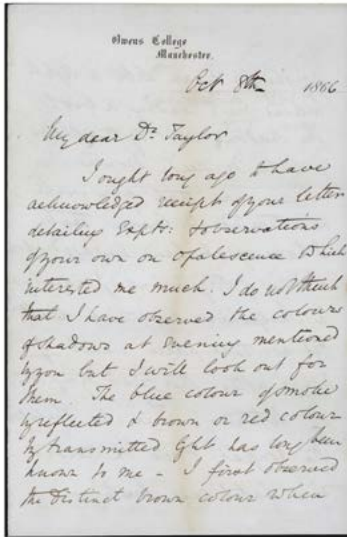 Owens College
Manchester.
Oct 8th 1866
My dear Dr Taylor
I ought long ago to have
acknowledged receipt of your letter
detailing Expts: & observations
of your own on opalescence which
interested me much. I do not think
that I have observed the colours
of shadows at evening mentioned
by you but I will look out for
them. The blue colour of smoke
by reflected & brown or red colour
by transmitted light has long been
known to me - I first observed
the distinct brown colour when